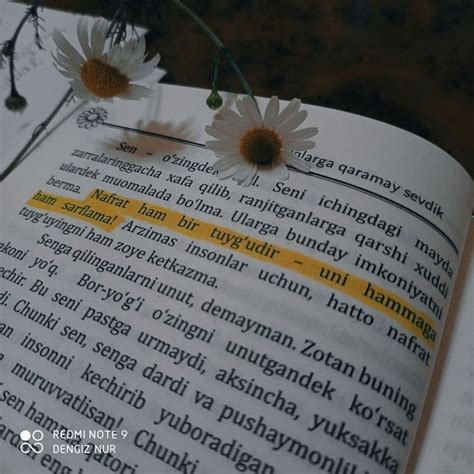 Sen – o'zingdek
ʻlarga qaramay sevdik
zarralaringgacha xafa qilib, ranjitganlarga qarshi xuddi
Seni ichingdagi mayda
ulardek muomalada bo'lma. Ularga bunday imkoniyatni
berma. Nafrat ham bir tuyg'udir – uni hammaga
ham sarflama! Arzimas insonlar uchun, hatto nafrat
tuyg'uyingni ham zoye ketkazma.
Senga qilinganlarni unut, demayman. Zotan buning
ekoni yo'q. Bor-yo'g'i o'zingni unutgandek ko'rsat
echir. Bu seni pastga urmaydi, aksincha, yuksakka
di. Chunki sen, senga dardi va pushaymonlu
an insonni kechirib yuboradigan
muruvvatlisan. Chunki
sen ham
REDMI NOTE 9
DENGIZ NUR